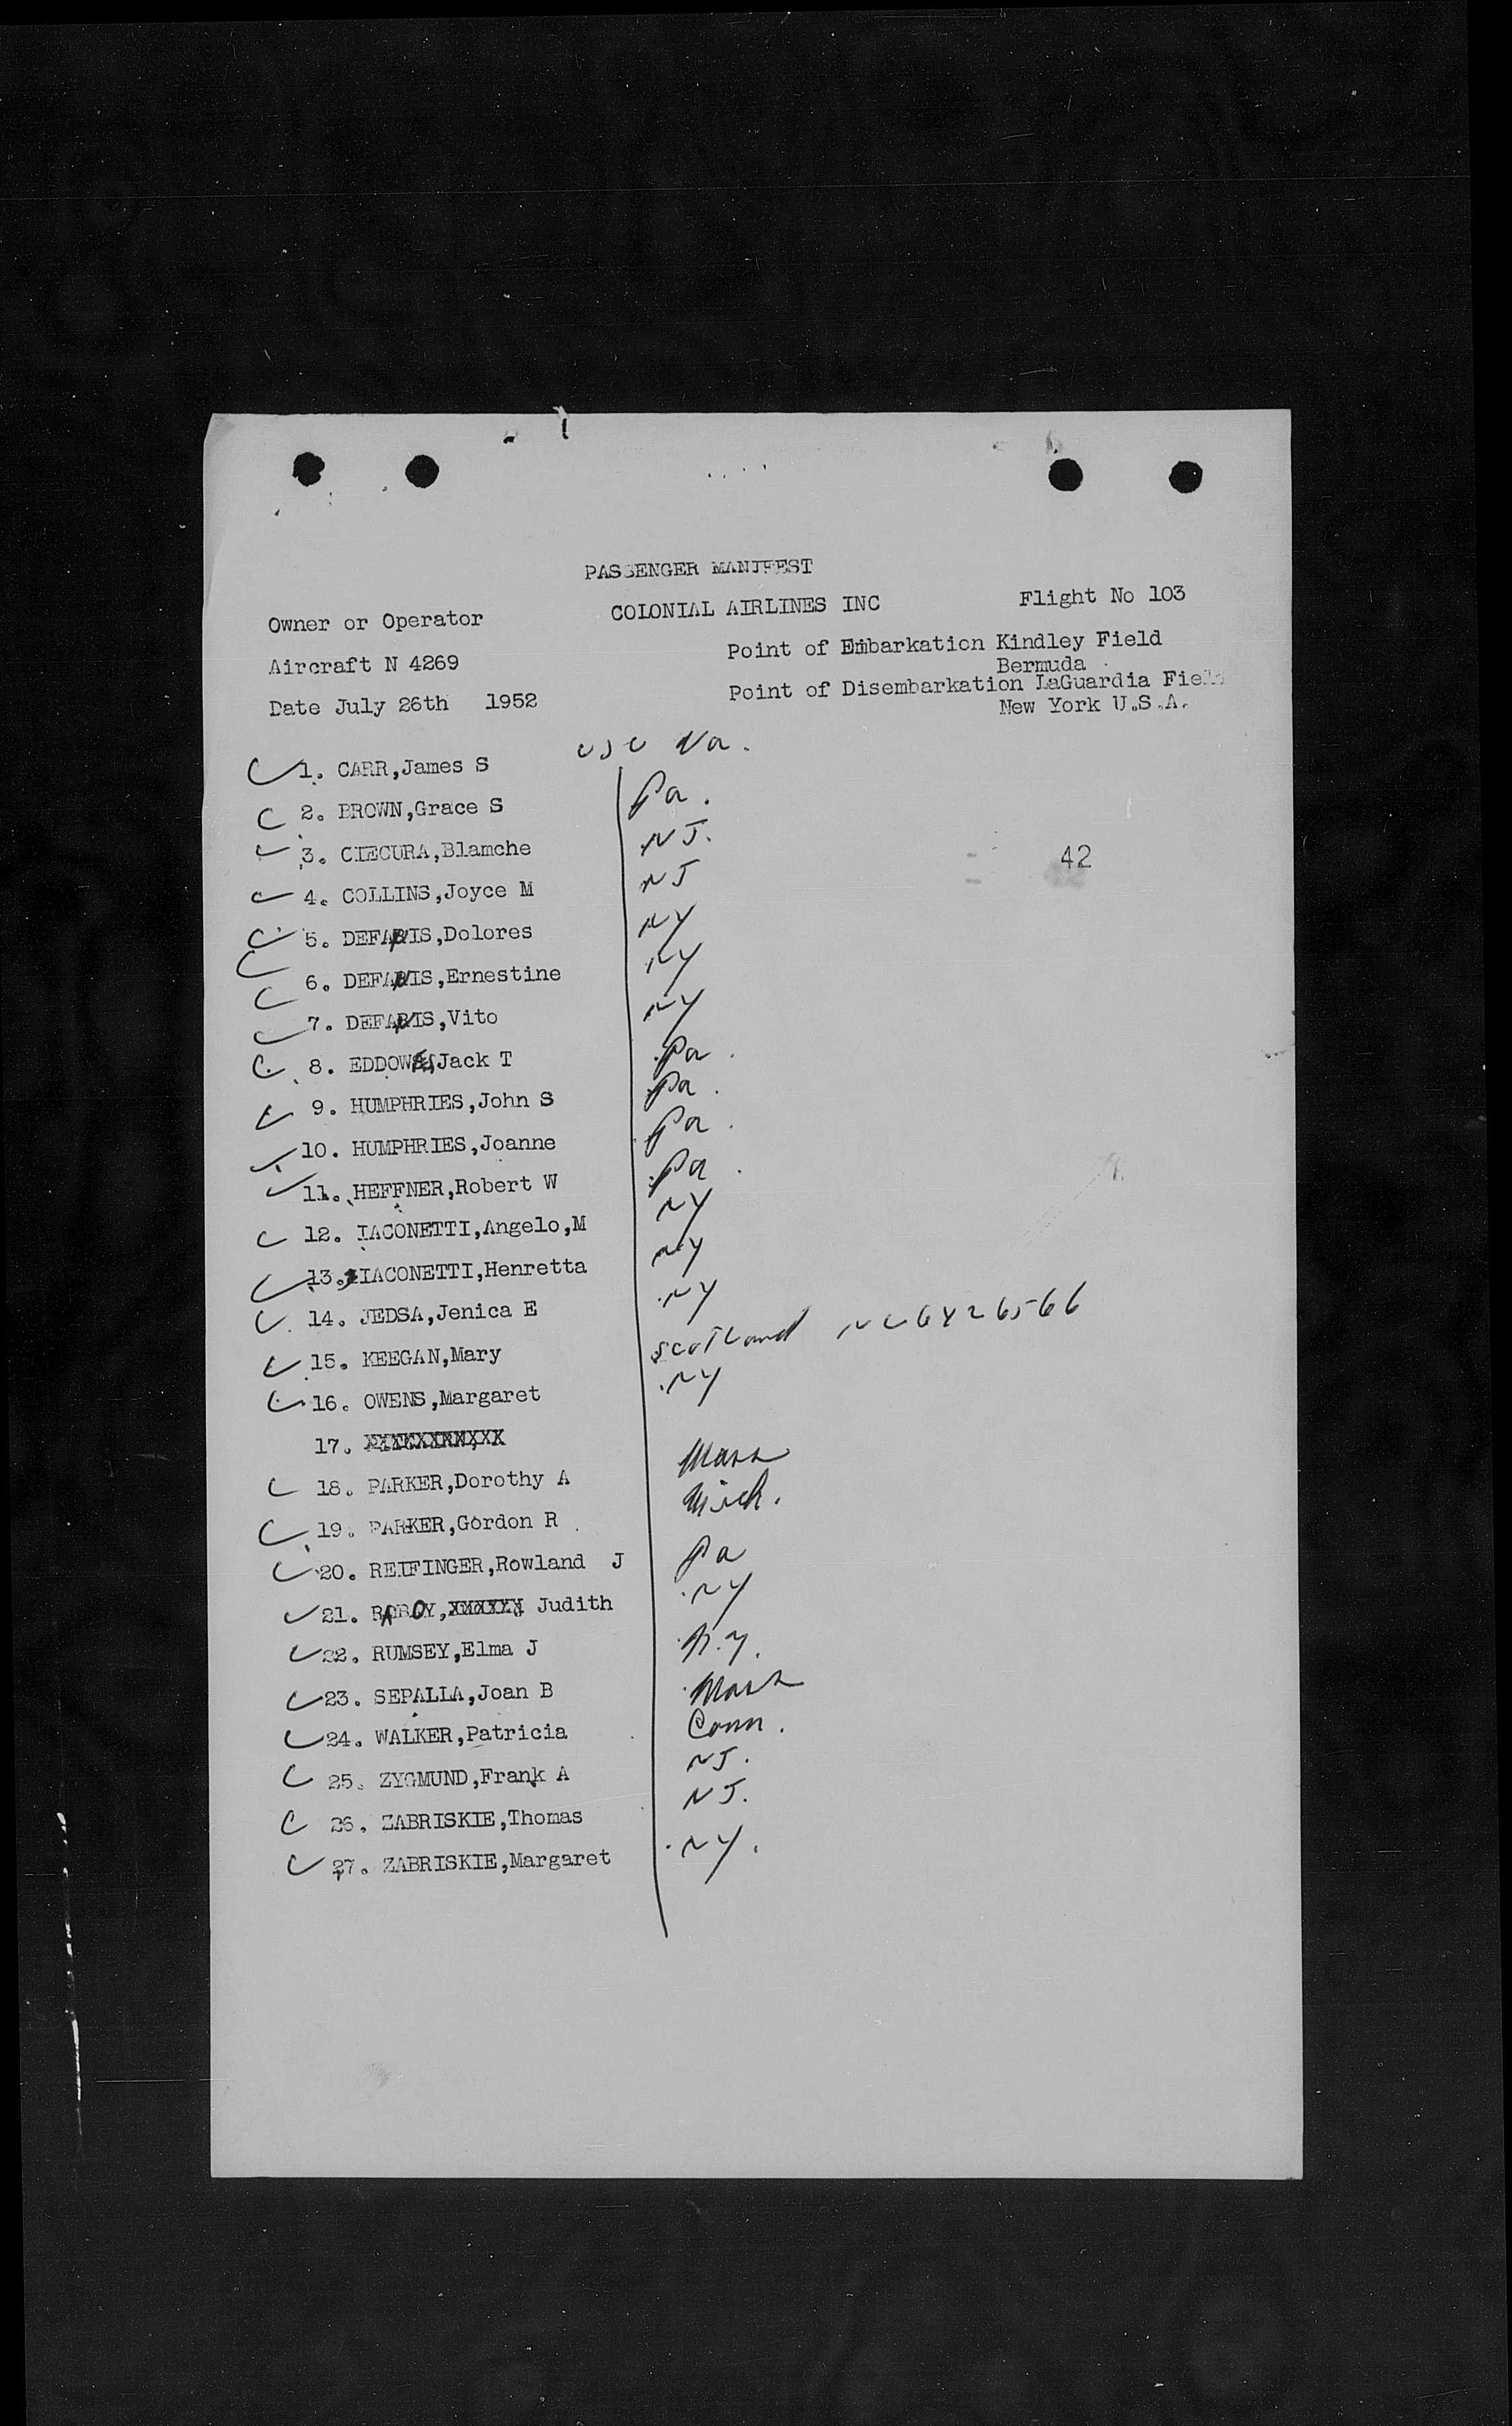 PASSENGER MANIFEST
Owner or Operator COLONIAL AIRLINES INC Flight No 103
Aircraft N 4269 Point of Embarkation Kindley Field
Bermuda
Date July 26th 1952 Point of Disembarkation LaGuardia Field
New York U.S.A.
1. CARR,James S USC Va.
2. BROWN,Grace S Pa.
3. CIECURA,Blamche NJ.
42
4. COLLINS,Joyce M NJ
5. DEFANIS,Dolores NY
6. DEFANIS,Ernestine NY
7. DEFANIS,Vito NY
8. EDDOWES,Jack T Pa.
9. HUMPHRIES,John S Pa.
10. HUMPHRIES,Joanne Pa.
11. HEFFNER,Robert W Pa.
12. IACONETTI,Angelo,M NY
13. IACONETTI,Henretta NY
14. JEDSA,Jenica E NY
15. KEEGAN,Mary Scotland
16. OWENS,Margaret NY
17.
18. PARKER,Dorothy A Mass
19. PARKER,Gordon R Mich.
20. REIFINGER,Rowland J Pa
21. RABOY, Judith NY
22. RUMSEY,Elma J N.Y.
23. SEPALLA,Joan B Mass
24. WALKER,Patricia Conn.
25. ZYGMUND,Frank A NJ.
26. ZABRISKIE,Thomas NJ.
27. ZABRISKIE,Margaret NY.